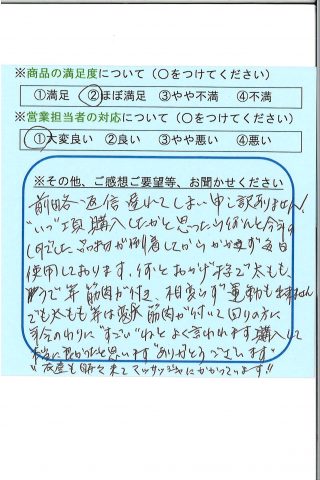 ※商品の満足度について（○をつけてください）
①満足 ②ほぼ満足 ③やや不満 ④不満
※営業担当者の対応について（○をつけてください）
①大変良い ②良い ③やや悪い ④悪い
※その他、ご感想ご要望等、お聞かせください
前略 返信遅れてしまい申し訳ありません!
"いつ"頃購入したかと思ったら何んと今年の
品物が到着してからかかさず毎日
使用しております。何とおかげ様で太もも
筋肉が付き、相変らず運動も出来ません
でも太もも 筋肉が付いて回りの方に
年令のわりに"すごい"ねとよく言われます。購入して
本当に良かったと思います"ありがとうございます"
"友達も時々来てマッサージャにかかっています!!